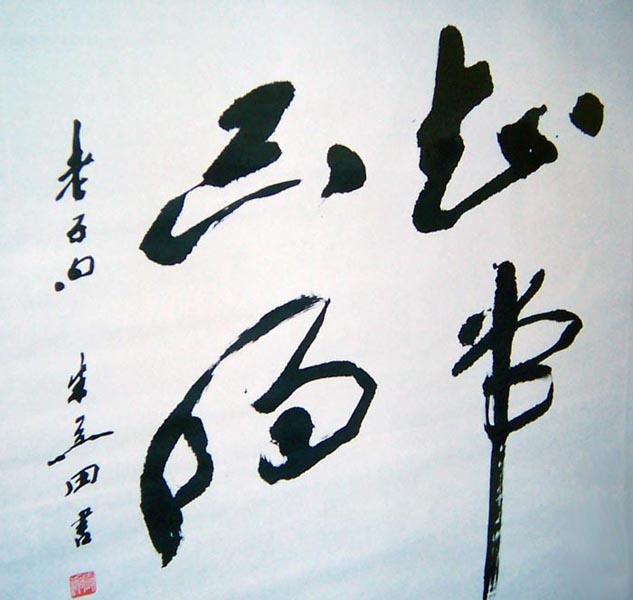 知常
曰明
老子句 朱田書